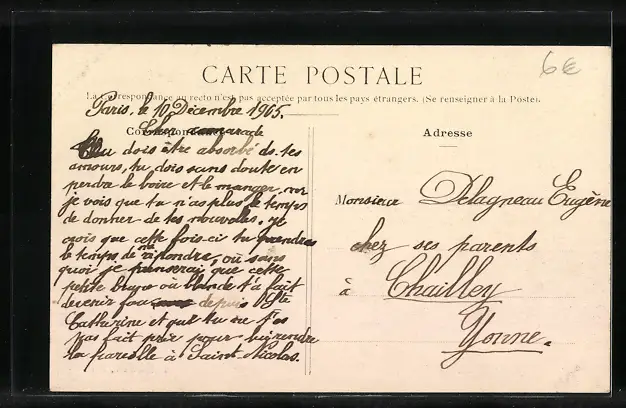 6€
CARTE POSTALE
La Correspondance au recto n'est pas acceptée par tous les pays étrangers. (Se renseigner à la Poste).
Paris, le 10 Décembre 1905.
Correspondance
Adresse
Cher camarade
Tu dois être absorbé ds tes
amours, tu dois sans doute en
perdre le boire et le manger, car
je vois que tu n'as plus le temps
de donner de tes nouvelles. je
crois que cette fois-ci tu prendras
le temps de me répondre, où sans
quoi je penserai que cette
petite brune où blonde t'a fait
devenir fou depuis Ste
Catherine et que tu ne t'es
pas fait prier pour lui rendre
la pareille à Saint-Nicolas.
Monsieur Delagneau Eugène
chez ses parents
à Chailley
Yonne.